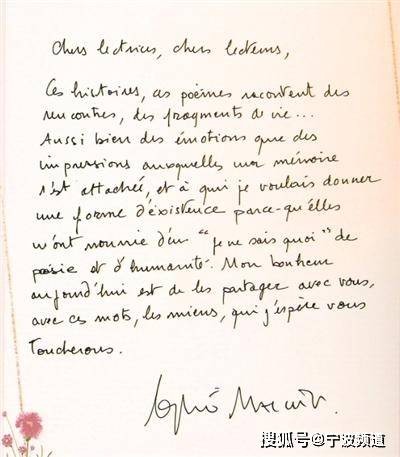 Chers lectrices, chers lecteurs,
Ces histoires, ces poèmes racontent des
rencontres, des fragments de vie...
Aussi bien des émotions que des
impressions auxquelles ma mémoire
s'est attachée, et à qui je voulais donner
une forme d'existence parce-qu'elles
m'ont nourrie d'un "je ne sais quoi" de
poésie et d'humanité. Mon bonheur
aujourd'hui est de les partager avec vous,
avec ces mots, les miens, qui j'espère vous
toucherons.
搜狐号@宁波频道